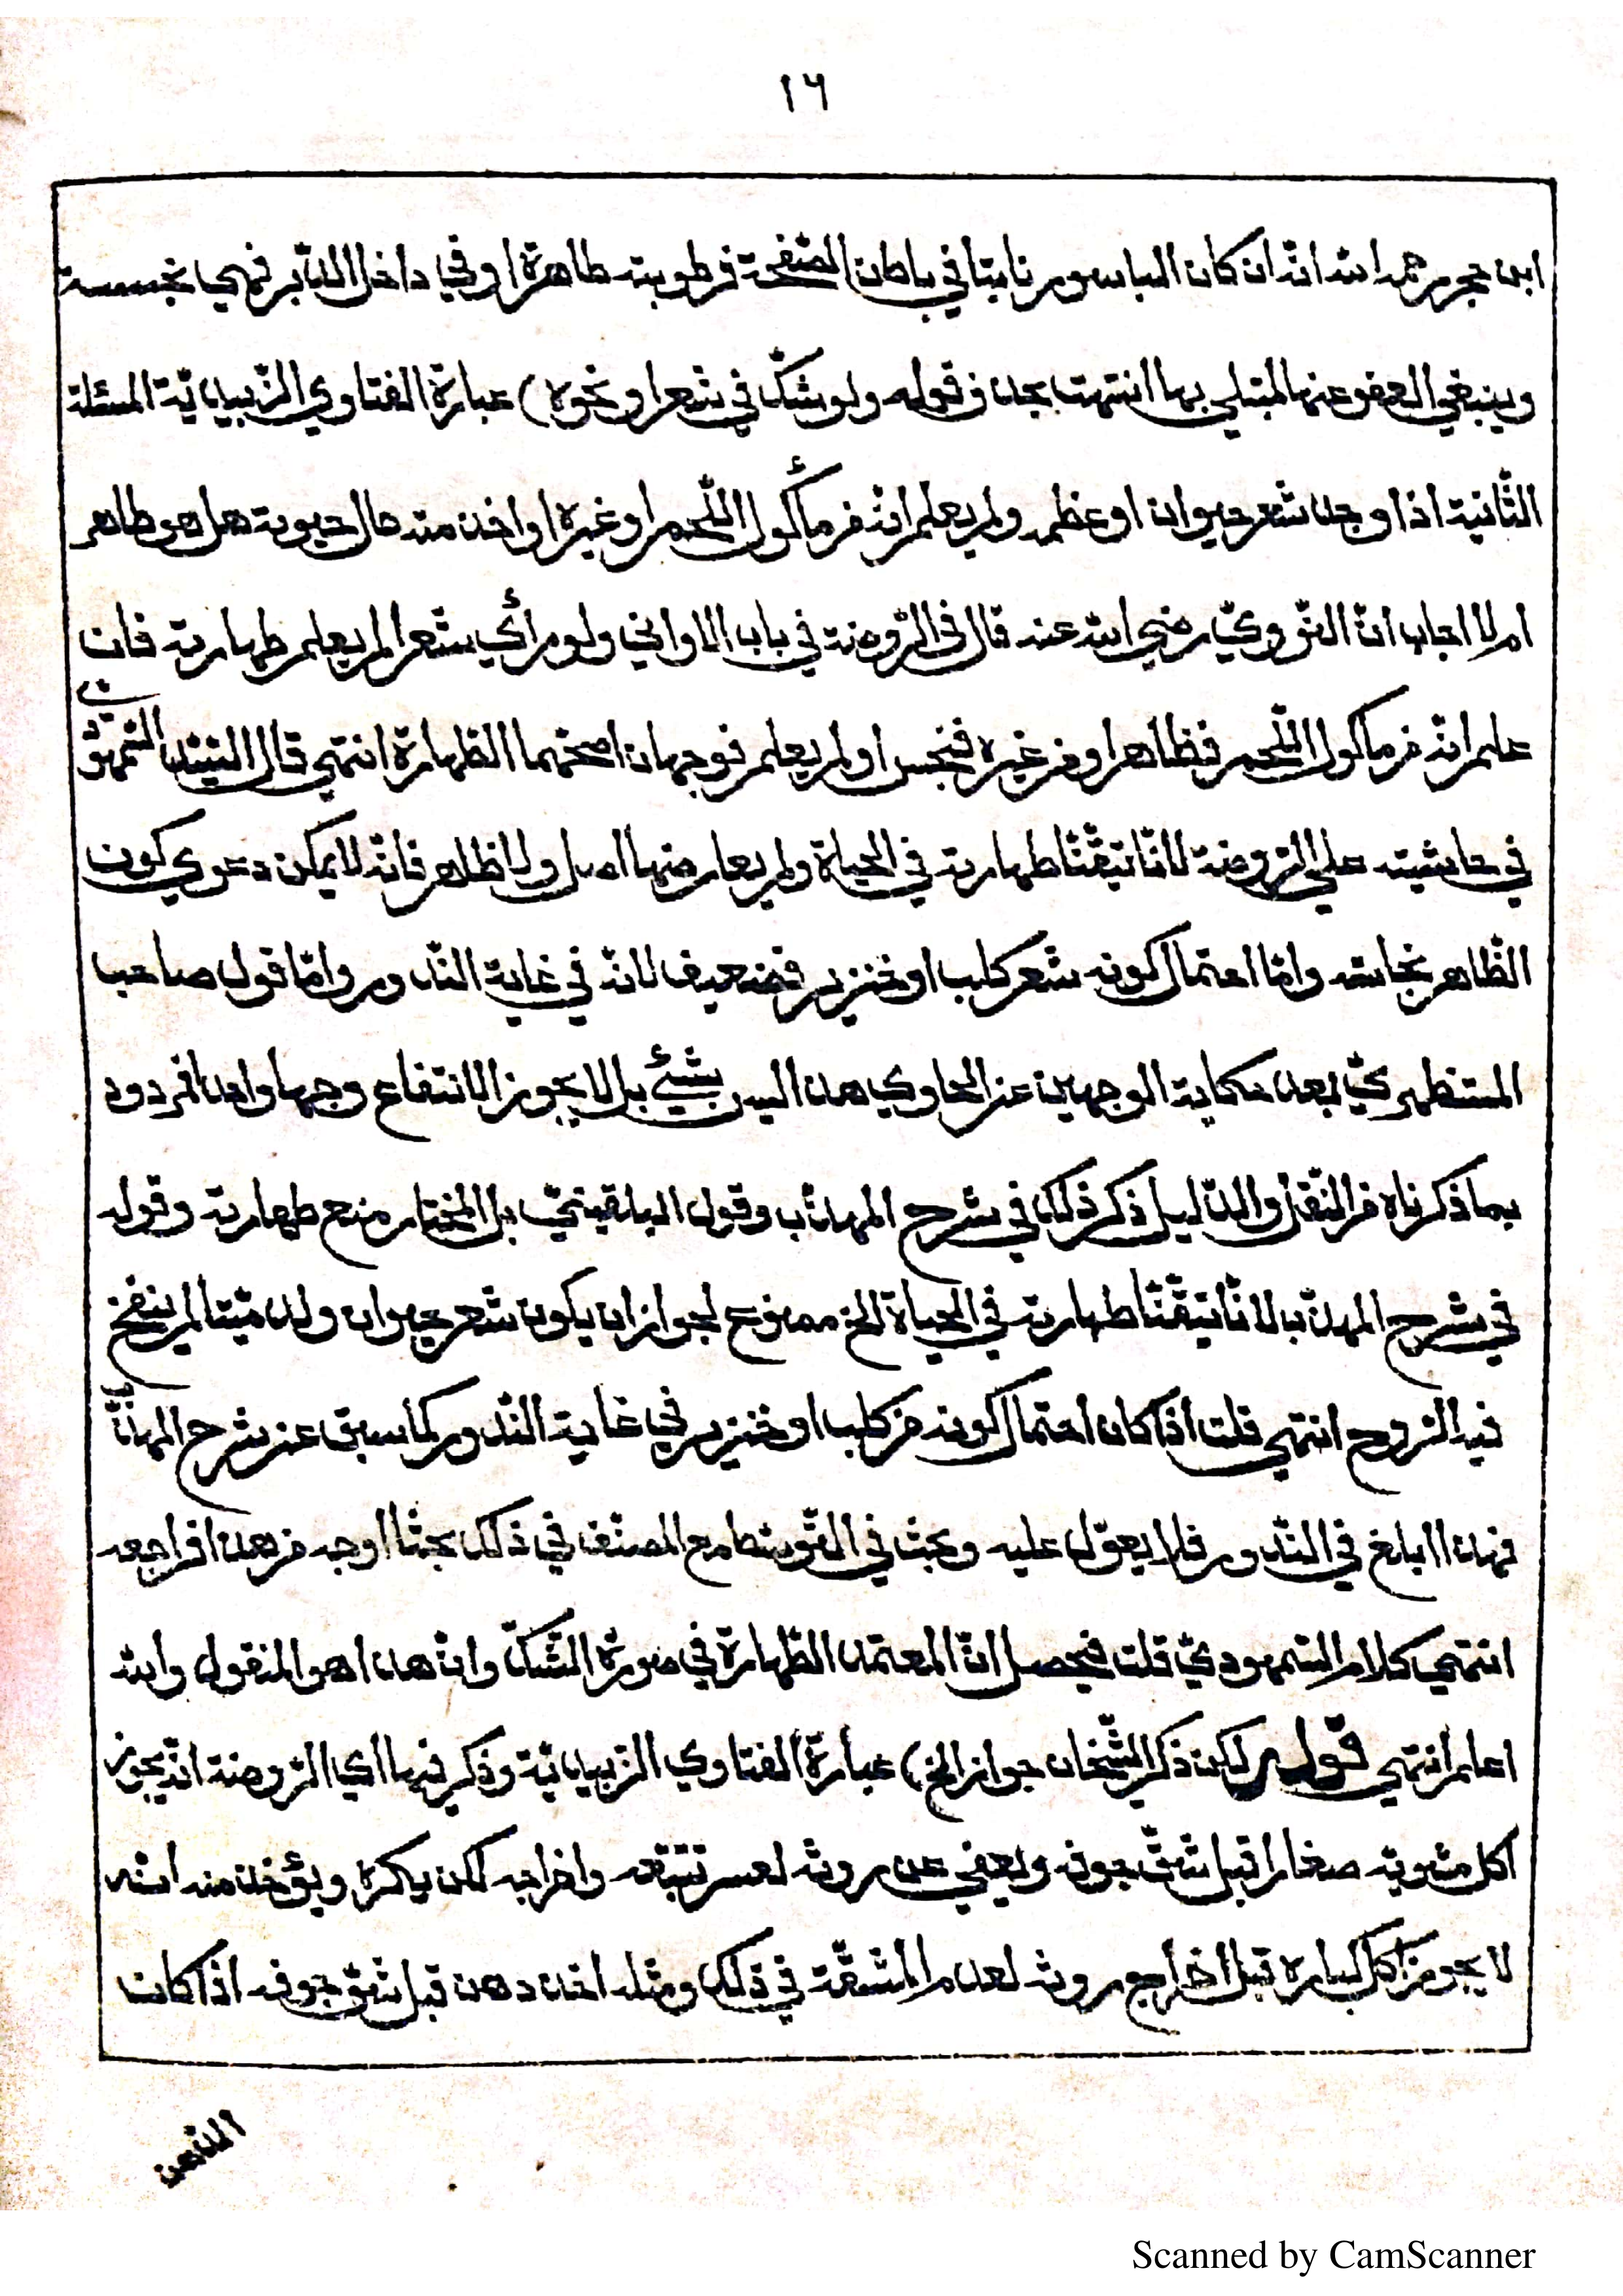 ١٦
ابن حجر رحمه الله انه ان كان الباسور نابتا في باطن الصفحة فرطوبته طاهرة او في داخل الدّبر فهي نجسة
وينبغي العفو عنها لمبتلي بها انتهت بحذف قوله ولو شكّ في شعر او نحوه) عبارة الفتاوي الزّبيديّة المسئلة
الثّانية اذا وجد شعر حيوان او عظمه ولم يعلم انّه من مأكول اللّحم او غيره او اخذ منه حال حيوته هل هو طاهر
ام لا اجاب انّ النّوويّ رضي الله عنه قال في الرّوضة في باب الاواني ولو رأي شعرا لم يعلم طهارته فان
علم انّه من مأكول اللّحم فطاهر او من غيره فنجس او لم يعلم فوجهان اصحّهما الطّهارة انتهي قال السّيّد السّمهودي
في حاشيته علي الرّوضة لانّا تيقّنّا طهارته في الحياة ولم يعارضها اصل ولا ظاهر فانّه لا يمكن دعوي كون
الظّاهر نجاسته وامّا احتمال كونه شعر كلب او خنزير فضعيف لانّه في غاية النّدور وامّا قول صاحب
المستظهريّ بعد حكاية الوجهين عن الحاوي هذا ليس بشيئ بل لا يجوز الانتفاع وجها واحدا فمردود
بما ذكرناه من النّقل والدّليل ذكر ذلك في شرح المهذّب وقول البلقينيّ بل المختار منع طهارته وقوله
في شرح المهذّب لانّا تيقّنّا طهارته في الحياة الخ ممنوع لجواز ان يكون شعر حيوان ولد ميّتا لم ينفخ
فيه الرّوح انتهي قلت اذا كان احتمال كونه من كلب او خنزير في غاية النّدور كما سبق عن شرح المهذّب
فهذا ابلغ في النّدور فلا يعوّل عليه وبحث في التّوسّط مع المصنّف في ذلك بحثا اوجه من هذا فراجعه
انتهي كلام السّمهوديّ قلت فحصل انّ المعتمد الطّهارة في صورة الشّكّ وانّ هذا هو المنقول والله
اعلم انتهي قوله لكن ذكر الشّيخان جواز الخ) عبارة الفتاوي الزّبيديّة وذكر فيها اي الرّوضة انّه يجوز
اكل مشويّه صغارا قبل شقّ جوفه ويعفي عن روثه لعسر تتبّعه واخراجه لكن يكره ويؤخذ منه انّه
لا يجوز اكل كباره قبل اخراج روثه لعدم المشقّة في ذلك ومثله اخذ دهن قبل شقّ جوفه اذا كان
الدّهن
Scanned by CamScanner